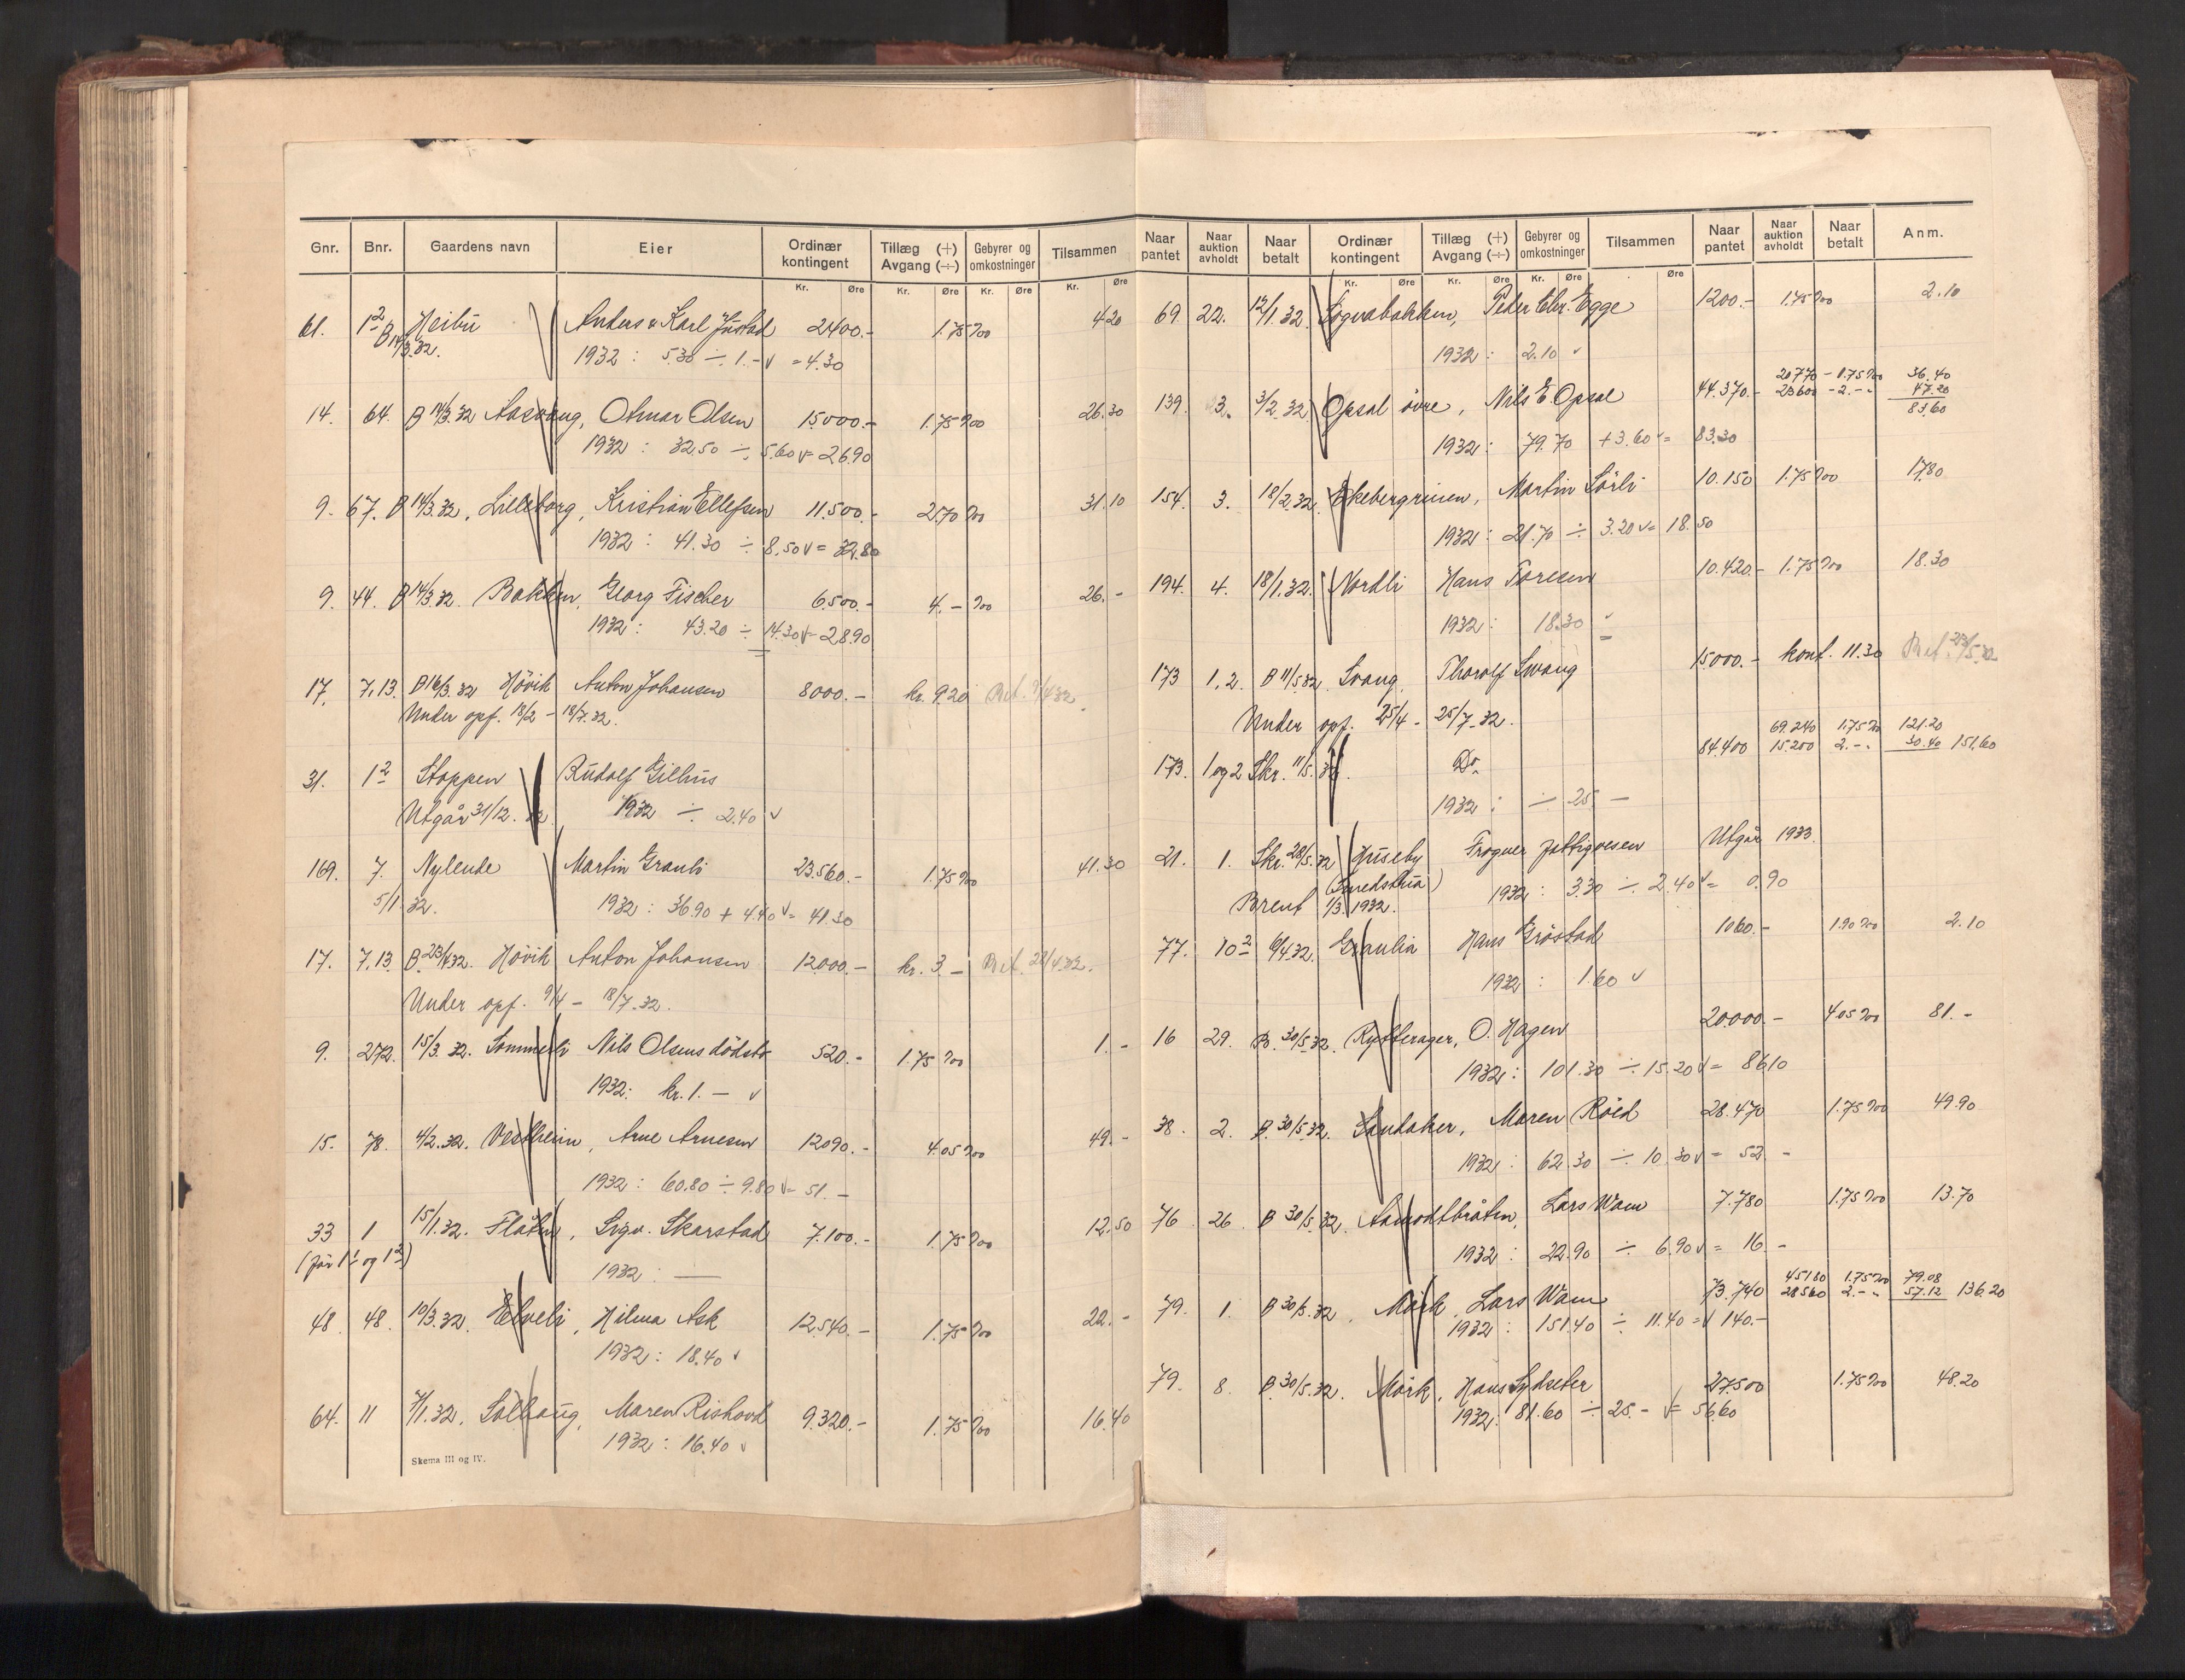 Gnr. Bnr. Gaardens navn Eier Ordinær kontingent Tillæg (+) Avgang (÷) Gebyrer og omkostninger Tilsammen
Kr. Øre Kr. Øre Kr. Øre Kr. Øre
61. 1² Heibu Anders & Karl Justad 2400.- 1.75 ‰ 4.20
B 14/3.32. 1932 : 5.30 ÷ 1.- v = 4.30
14. 64. B 14/3.32 Aasvang, Otmar Olsen 15000.- 1.75 ‰ 26.30
1932 : 32.50 ÷ 5.60 v = 26.90
9. 67. B 14/3.32, Lilleborg, Kristian Ellefsen 11.500.- 2.70 ‰ 31.10
1932 : 41.30 ÷ 8.50 v = 32.80
9. 44. B 14/3.32. Bakken, Georg Fischer 6.500.- 4.- ‰ 26.-
1932 : 43.20 ÷ 14.30 v = 28.90
17. 7,13. B 16/3.32 Hövik Anton Johansen 8000.- kr. 9.20 Bet. 7/4 32.
Under opf. 18/2 - 18/7.32.
31. 1² Stoppen Rudolf Gilhus
Utgår 31/12.32 1932 ÷ 2.40 v
169. 7. Nylende Martin Grauli 23.560.- 1.75 ‰ 41.30
5/1.32. 1932 : 36.90 + 4.40 v = 41.30
17. 7,13. B. 23/4 32. Hövik Anton Johansen 12000.- kr. 3.- Bet. 28/4.32.
Under opf. 9/4 - 18/7.32.
9. 272. 15/3.32. Sommerli Nils Olsens dödsbo 520.- 1.75 ‰ 1.-
1932: kr. 1.- v
15. 78. 4/2.32. Vestheim, Arne Arnesen 12090.- 4.05 ‰ 49.-
1932 : 60.80 ÷ 9.80 v = 51.-
33 1 15/1.32. Flåten, Sigv. Skarstad 7.100.- 1.75 ‰ 12.50
(før 1¹ og 1²) 1932 : —
48. 48. 10/3.32. Elveli, Hilma Ask 12.540.- 1.75 ‰ 22.-
1932 : 18.40 v
64. 11 7/1.32. Solhaug, Maren Rishovd 9.320.- 1.75 ‰ 16.40
1932 : 16.40 v
Skema III og IV.
Naar pantet Naar auktion avholdt Naar betalt Ordinær kontingent Tillæg (+) Avgang (÷) Gebyrer og omkostninger Tilsammen Naar pantet Naar auktion avholdt Naar betalt Anm.
Kr. Øre Kr. Øre Kr. Øre Øre
69. 22. 12/1.32. Sogvabakken, Peder Chr. Egge 1200.- 1.75 ‰ 2.10
1932 : 2.10 v
20770 - 1.75 ‰ 36.40
139. 3. 3/2.32 Opsal øvre, Nils E. Opsal 44.370.- 23600 - 2.- " 47.20
83.60
1932 : 79.70 + 3.60 v = 83.30
154. 3. 18/2.32. Ekebergruen, Martin Sörli 10.150 1.75 ‰ 17.80
1932 : 21.70 ÷ 3.20 v = 18.50
194. 4. 18/1.32. Nordli Hans Toresen 10.420.- 1.75 ‰ 18.30
1932 : 18.30 v
173 1,2. B 11/5 32 Svang, Thorolf Svang 15000.- kont. 11.30 Bet. 23/5.32
Under opf. 25/4 - 25/7.32.
69.240 1.75 ‰ 121.20
173. 1 og 2 Skr. 11/5.32. Do. 84.400 15.200 2.- " 30.40 151.60
1932 : ÷ 25 -
21. 1. Skr. 28/5.32 Huseby Frogner fattigvesen Utgår 1933.
(Smedstua) 1932 : 3.30 ÷ 2.40 v = 0.90
Brent 1/3 1932.
77. 10² 6/4 32. Graulia Hans Gröstad 1060.- 1.90 ‰ 2.10
1932 : 1.60 v
16 29. B. 30/5.32. Rytterager, O. Hagen 20.000.- 4.05 ‰ 81.-
1932 : 101.30 ÷ 15.20 v = 86.10
38. 2. B. 30/5.32. Sandaker, Maren Röed 28.470 1.75 ‰ 49.90
1932 : 62.30 ÷ 10.30 v = 52.-
76 26. B 30/5.32. Aamodtbråten, Lars Wam 7.780 1.75 ‰ 13.70
1932 : 22.90 ÷ 6.90 v = 16.-
45180 1.75 ‰ 79.08
79. 1. B 30/5.32. Mörk, Lars Wam 73.740 28560 2.- " 57.12 136.20
1932 : 151.40 ÷ 11.40 = v 140.-
79. 8. B. 30/5.32. Mörk, Hans Sydseter 27.500 1.75 ‰ 48.20
1932 : 81.60 ÷ 25.- v = 56.60